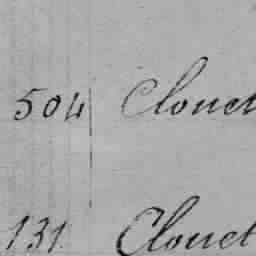 504 Clouet
131 Clouet